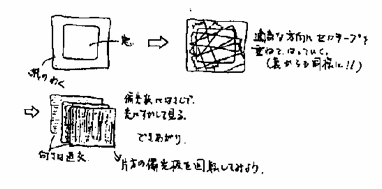 窓
わく
適当な方向にセロテープを
重ねて、はっていく。
(裏からも同様に!!)
偏光板にはさんで、
光にすかして見る。
できあがり。
向きは直交
片方の偏光板を回転してみよう。